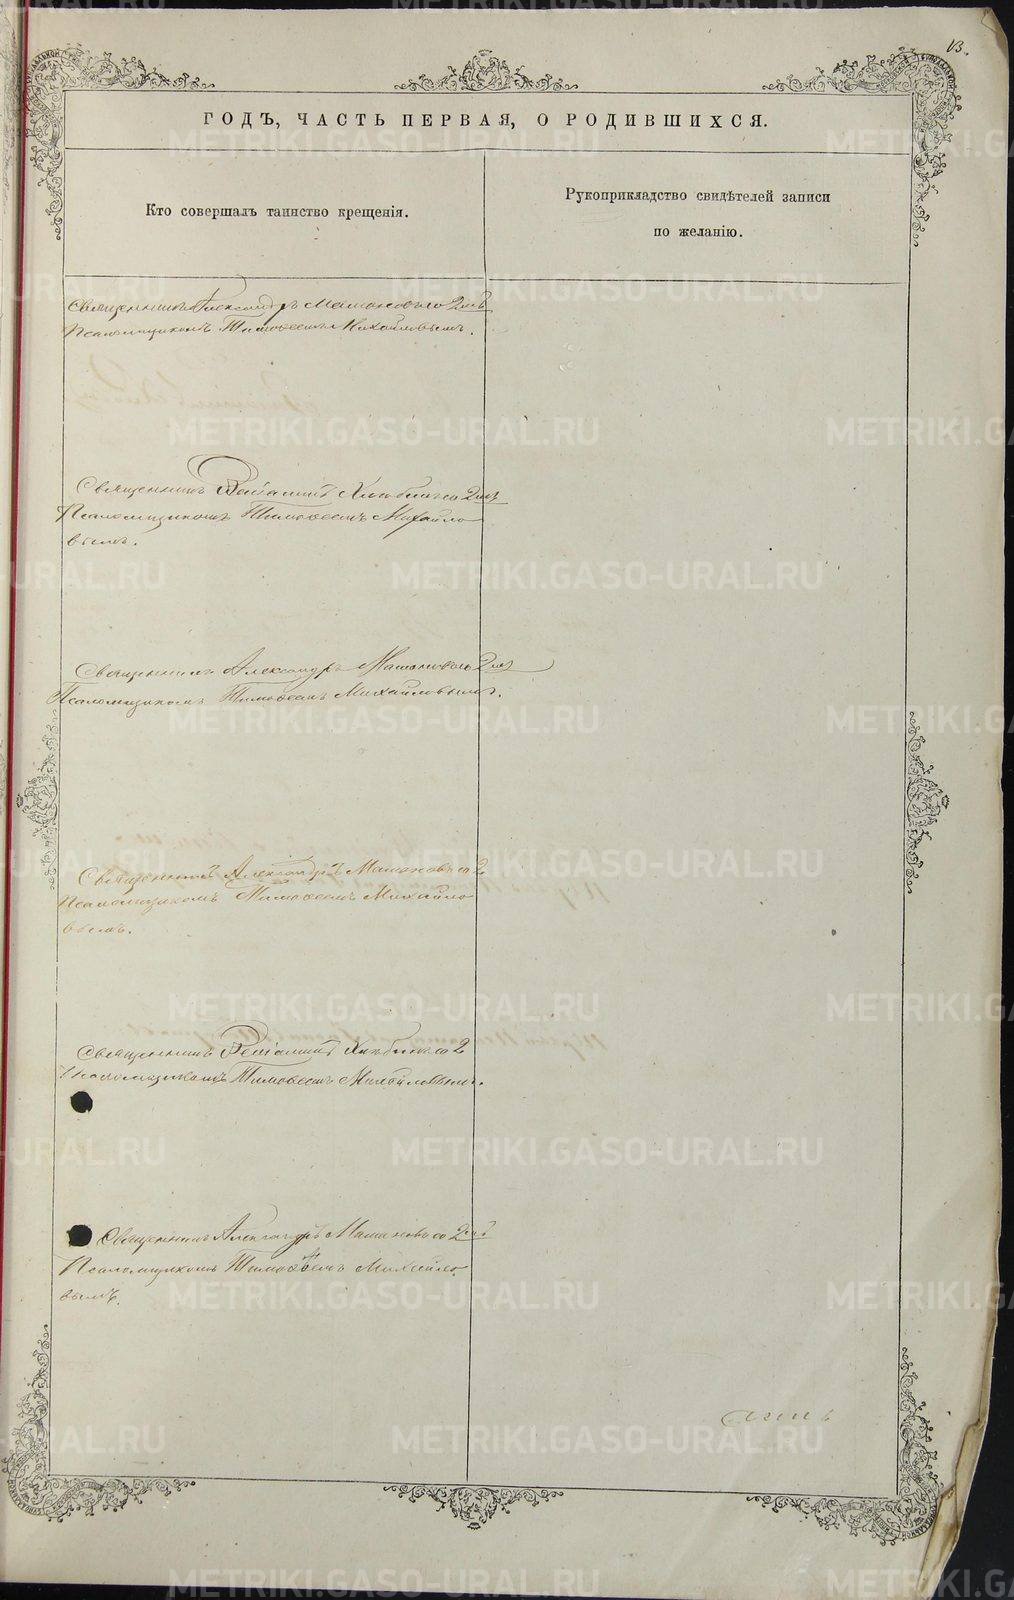 13.
ГОДЪ, ЧАСТЬ ПЕРВАЯ, О РОДИВШИХСЯ.
Кто совершалъ таинство крещенія.
Рукоприкладство свидѣтелей записи
по желанію.
Священникъ Александръ Мамоновъ со 2мъ
Псаломщикомъ Тимоѳеемъ Михайловымъ.
Священникъ Веніаминъ со 2мъ
Псаломщикомъ Тимоѳеемъ Михайло
вымъ.
Священникъ Александръ Мамоновъ со 2мъ
Псаломщикомъ Тимоѳеемъ Михайловымъ.
Священникъ Александръ Мамоновъ со 2
Псаломщикомъ Тимоѳеемъ Михайло
вымъ.
Священникъ Веніаминъ со 2
Псаломщикомъ Тимоѳеемъ Михайловымъ.
Священникъ Александръ Мамоновъ со 2мъ
Псаломщикомъ Тимоѳеемъ Михайло
вымъ.
METRIKI.GASO-URAL.RU